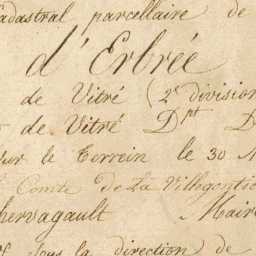 cadastral parcellaire de
d'Erbrée
de Vitré (2e division
de Vitré Dpt D
sur le terrein le 30
Comte De La Villegontie
hervagault Maire
sous la direction de